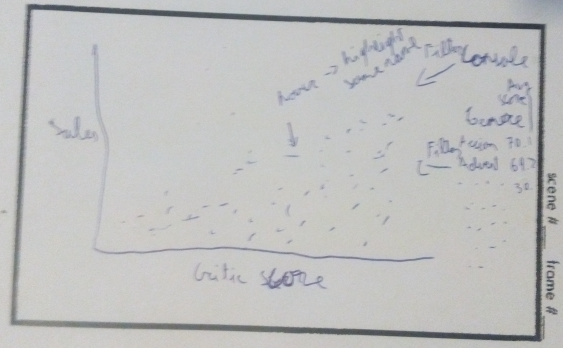 hover → highlight
same name
Filter Console
Avg
score
Genre
Sales
Filter Action 70.
Advent 69.7
Critic score
scene #
frame #